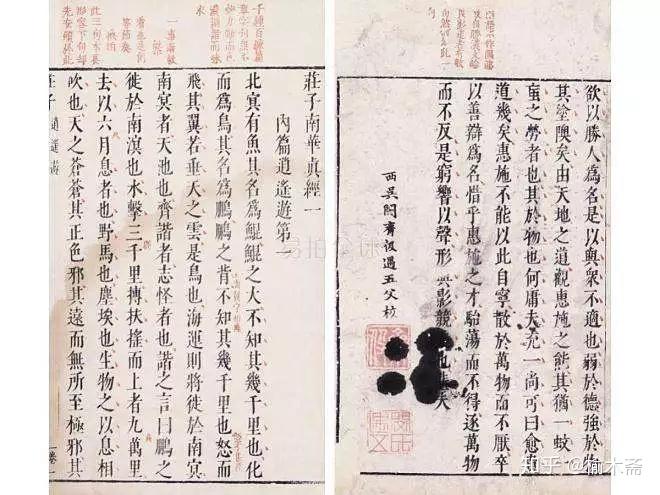 莊子南華真經一
內篇逍遙遊第一
北㝠有魚其名爲鯤鯤之大不知其幾千里也化
而爲鳥其名爲鵬鵬之背不知其幾千里也怒而
飛其翼若垂天之雲是鳥也海運則將徙於南㝠
南㝠者天池也齊諧者志怪者也諧之言曰鵬之
徙於南溟也水擊三千里摶扶搖而上者九萬里
去以六月息者也野馬也塵埃也生物之以息相
吹也天之蒼蒼其正色邪其遠而無所至極邪其
莊子 逍遙遊
欲以勝人爲名是以與衆不適也弱於德強於物
其塗隩矣由天地之道觀惠施之能其猶一蚊
䖟之勞者也其於物也何庸夫充一尚可曰愈貴
道幾矣惠施不能以此自寧散於萬物而不厭卒
以善辯爲名惜乎惠施之才駘蕩而不得逐萬物
而不反是窮響以聲形與影競也夫
西吳閔齊伋遇五父校
知乎